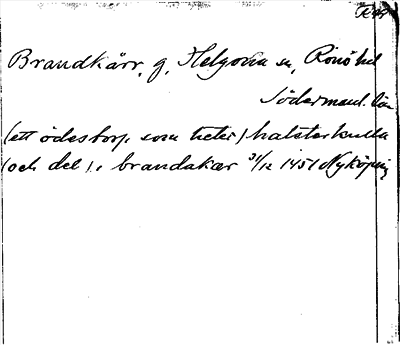 Brandkärr, g, Helgona sn, Rönö hd
Södermanl. län
(ett ödestorp som heter) halsterkulla
(och del i) brandakær 31/12 1451 Nyköping